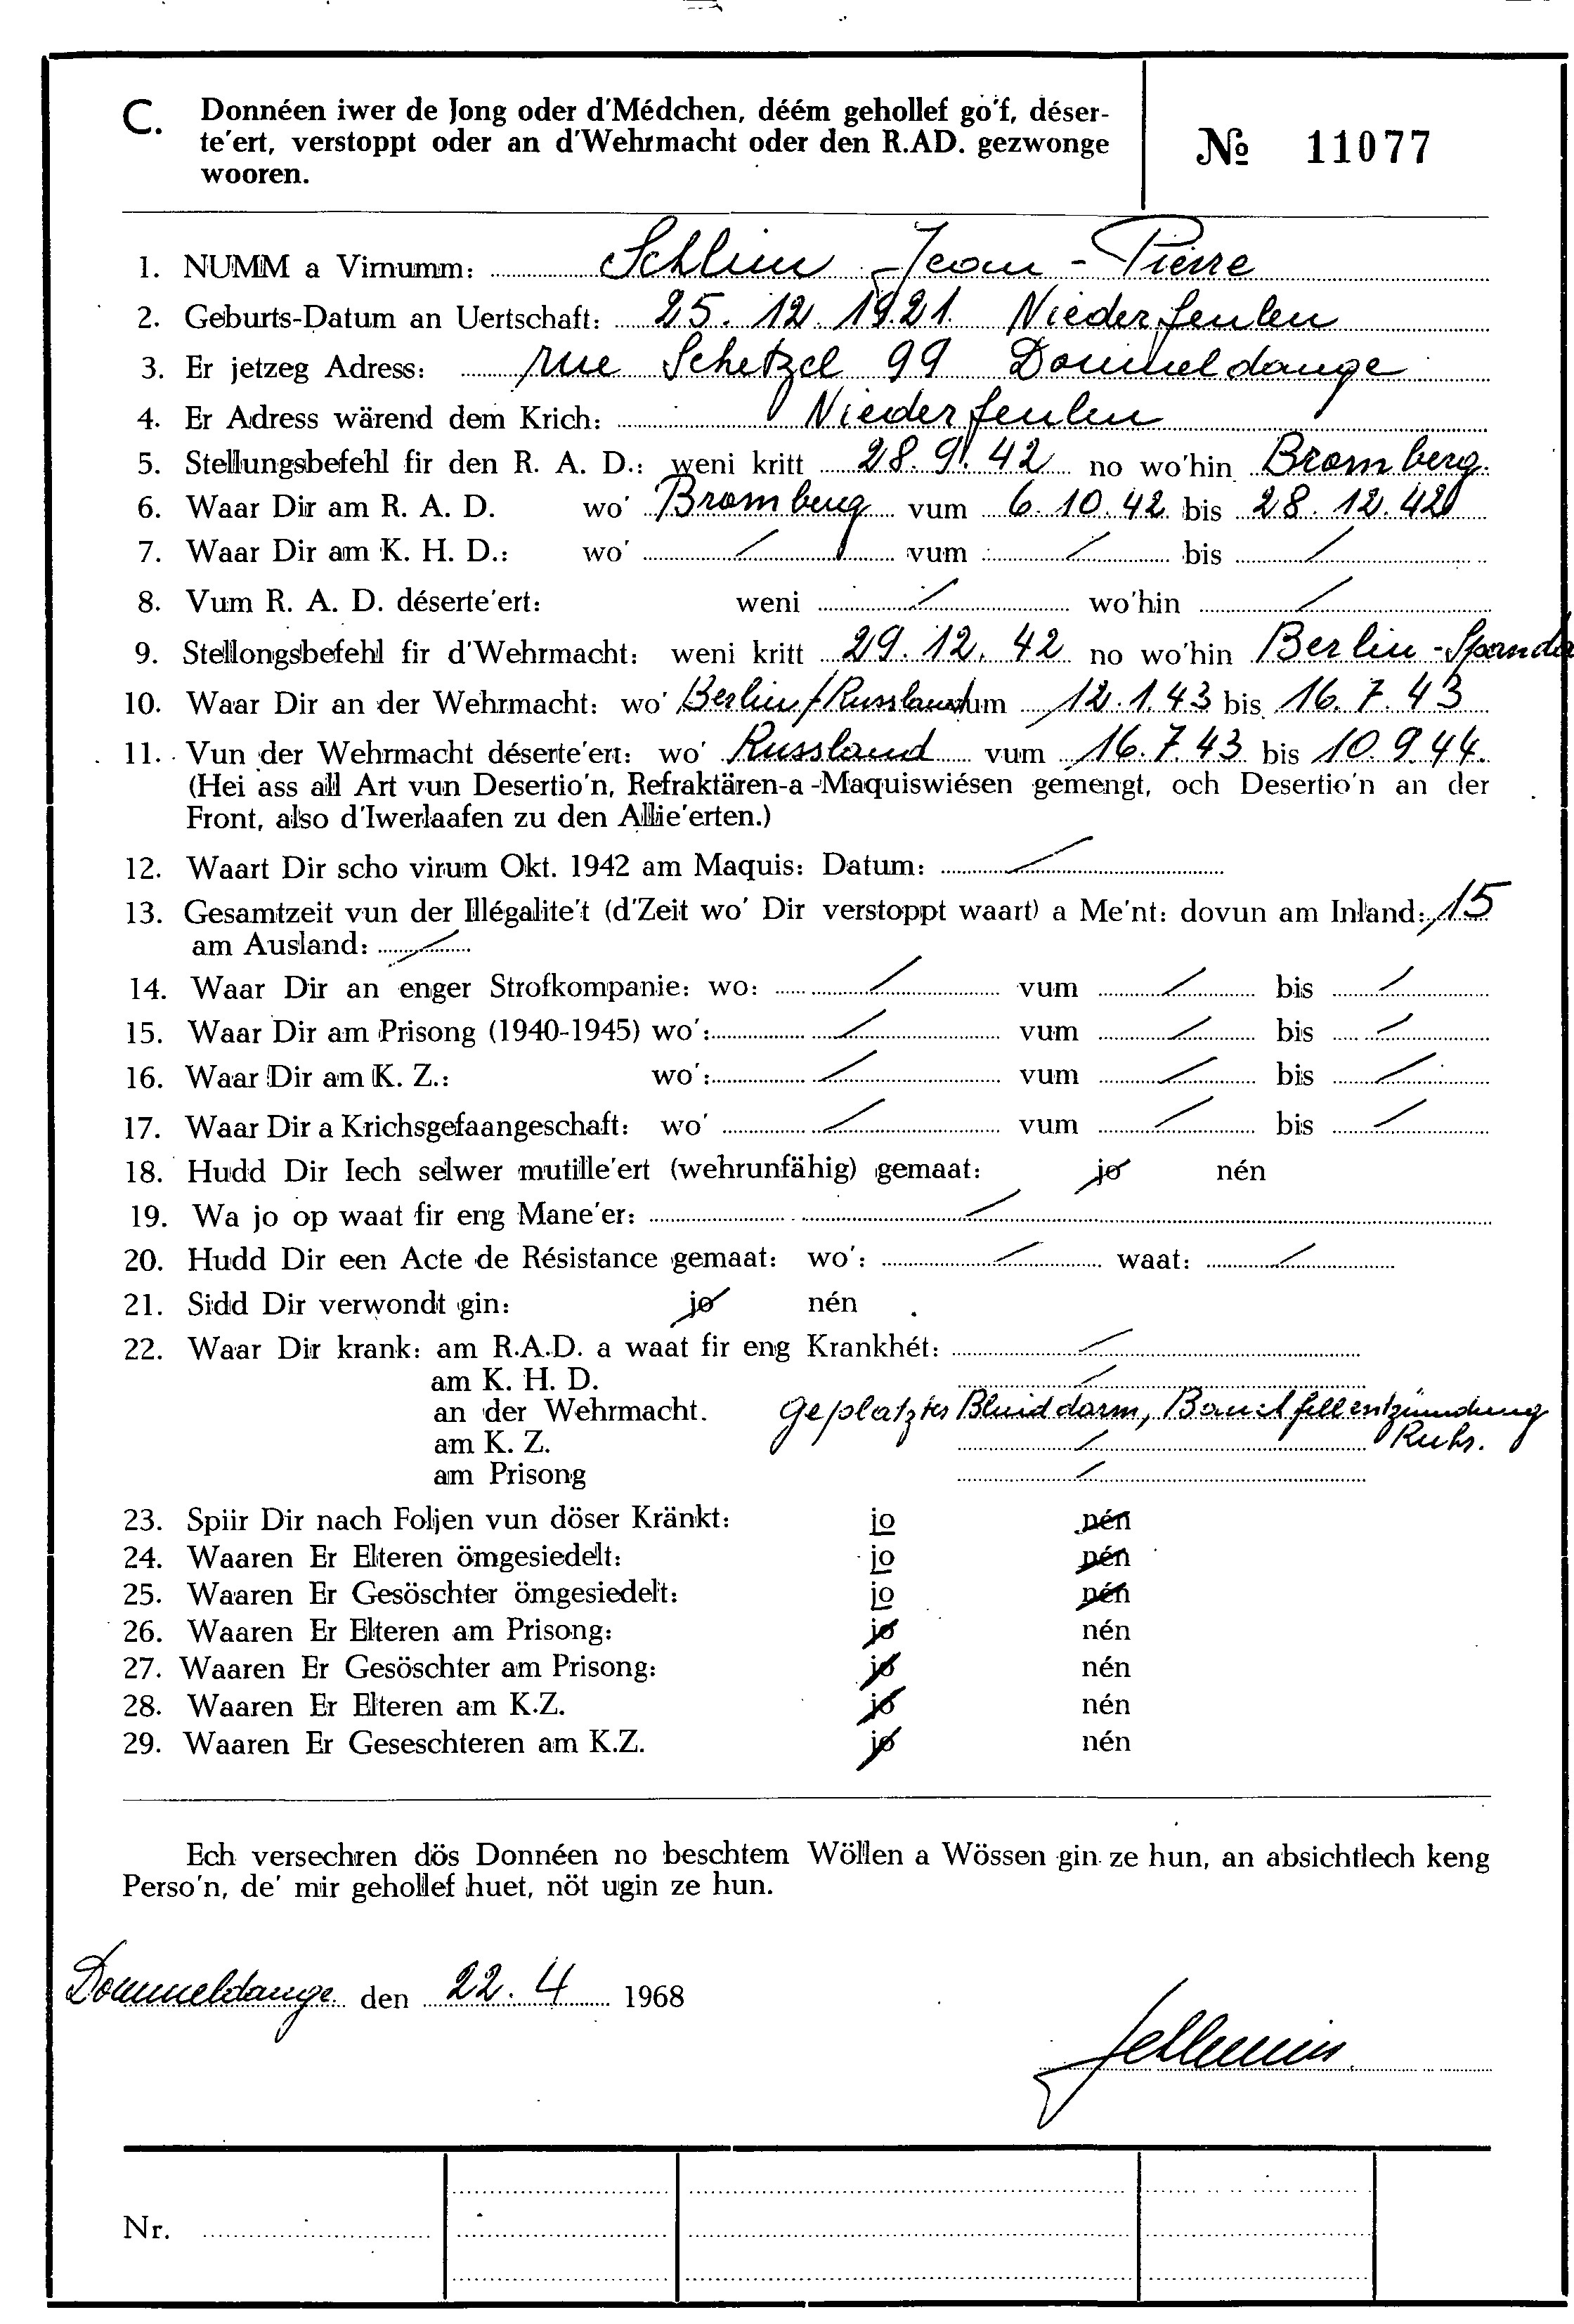 C. Donnéen iwer de Jong oder d'Médchen, déém gehollef go'f, déser-
te'ert, verstoppt oder an d'Wehrmacht oder den R.AD. gezwonge
wooren.
№ 11077
1. NUMM a Virnumm: Schlim Jean-Pierre
2. Geburts-Datum an Uertschaft: 25. 12. 1921. Niederfeulen
3. Er jetzeg Adress: rue Schetzel 99 Dommeldange
4. Er Adress wärend dem Krich: Niederfeulen
5. Stellungsbefehl fir den R. A. D.: weni kritt 28. 9. 42 no wo'hin Bromberg.
6. Waar Dir am R. A. D. wo' Bromberg vum 6. 10. 42 bis 28. 12. 42
7. Waar Dir am K. H. D.: wo' / vum / bis /
8. Vum R. A. D. déserte'ert: weni / wo'hin /
9. Stellongsbefehl fir d'Wehrmacht: weni kritt 29. 12. 42 no wo'hin Berlin-Spandau
10. Waar Dir an der Wehrmacht: wo' Berlin/Russland vum 12. 1. 43 bis 16. 7. 43
11. Vun der Wehrmacht déserte'ert: wo' Russland vum 16. 7. 43 bis 10. 9. 44.
(Hei ass all Art vun Desertio'n, Refraktären-a-Maquiswiésen gemengt, och Desertio'n an der
Front, also d'Iwerlaafen zu den Allie'erten.)
12. Waart Dir scho virum Okt. 1942 am Maquis: Datum: /
13. Gesamtzeit vun der Illégalite't (d'Zeit wo' Dir verstoppt waart) a Me'nt: dovun am Inland: 15
am Ausland: /
14. Waar Dir an enger Strofkompanie: wo: / vum / bis /
15. Waar Dir am Prisong (1940-1945) wo': / vum / bis /
16. Waar Dir am K. Z.: wo': / vum / bis /
17. Waar Dir a Krichsgefaangeschaft: wo' / vum / bis /
18. Hudd Dir Iech selwer mutille'ert (wehrunfähig) gemaat: jo nén
19. Wa jo op waat fir eng Mane'er: /
20. Hudd Dir een Acte de Résistance gemaat: wo': / waat: /
21. Sidd Dir verwondt gin: jo nén
22. Waar Dir krank: am R.A.D. a waat fir eng Krankhét: /
am K. H. D. /
an der Wehrmacht. Geplatzter Blinddarm, Bauchfellentzündung
am K. Z. / Ruhr.
am Prisong /
23. Spiir Dir nach Foljen vun döser Kränkt: jo nén
24. Waaren Er Elteren ömgesiedelt: jo nén
25. Waaren Er Gesöschter ömgesiedelt: jo nén
26. Waaren Er Elteren am Prisong: jo nén
27. Waaren Er Gesöschter am Prisong: jo nén
28. Waaren Er Elteren am K.Z. jo nén
29. Waaren Er Geseschteren am K.Z. jo nén
Ech versechren dös Donnéen no beschtem Wöllen a Wössen gin ze hun, an absichtlech keng
Perso'n, de' mir gehollef huet, nöt ugin ze hun.
Dommeldange den 22. 4 1968
Nr.